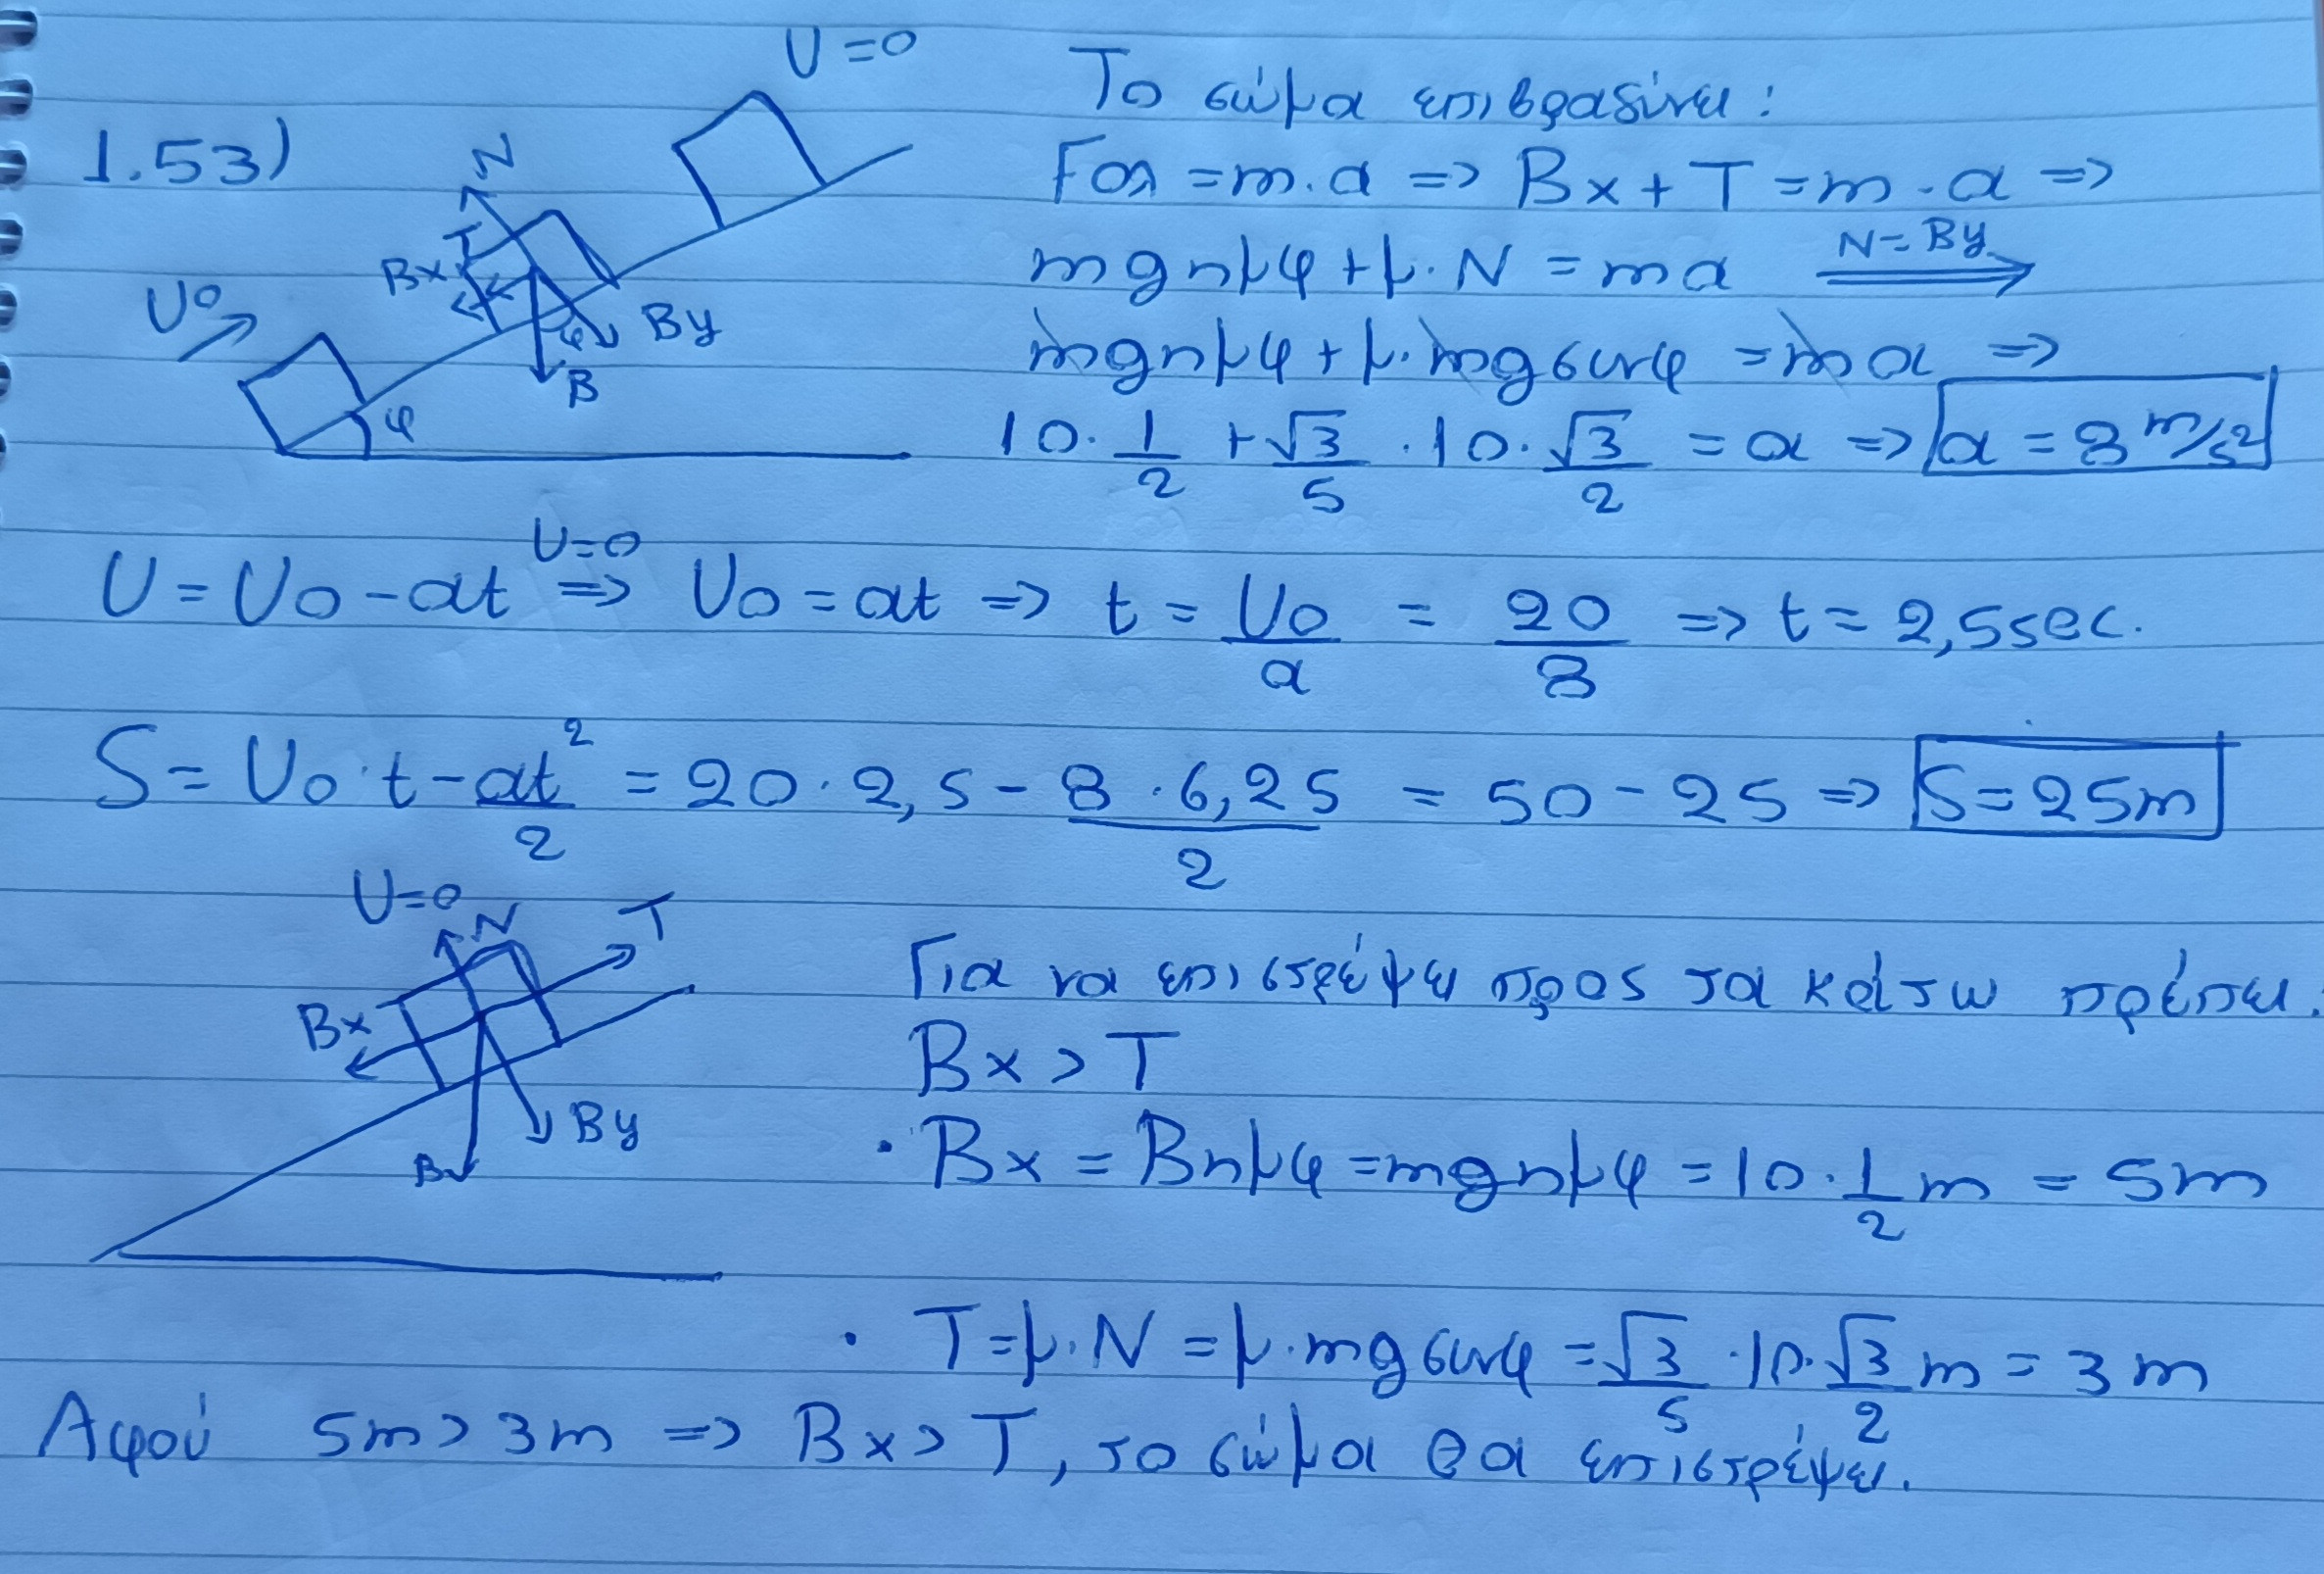 1.53)
U=0
N
T
Bx
By
φ
B
U0
φ
Το σώμα επιβραδύνει:
Fολ = m.a => Bx + T = m.a =>
mgημφ + μ.N = ma N=By =>
mgημφ + μ.mgσυνφ = ma =>
10. 1/2 + √3/5 . 10. √3/2 = a => a = 8 m/s²
U = U0 - at U=0 => U0 = at => t = U0/a = 20/8 => t = 2,5 sec.
S = U0·t - at²/2 = 20·2,5 - 8·6,25/2 = 50 - 25 => S = 25m
U=0
N
T
Bx
By
B
Για να επιστρέψει προς τα κάτω πρέπει:
Bx > T
· Bx = Bημφ = mgημφ = 10. 1/2 m = 5m
· T = μ.N = μ.mgσυνφ = √3/5 ·10· √3/2 m = 3m
Αφού 5m > 3m => Bx > T, το σώμα θα επιστρέψει.